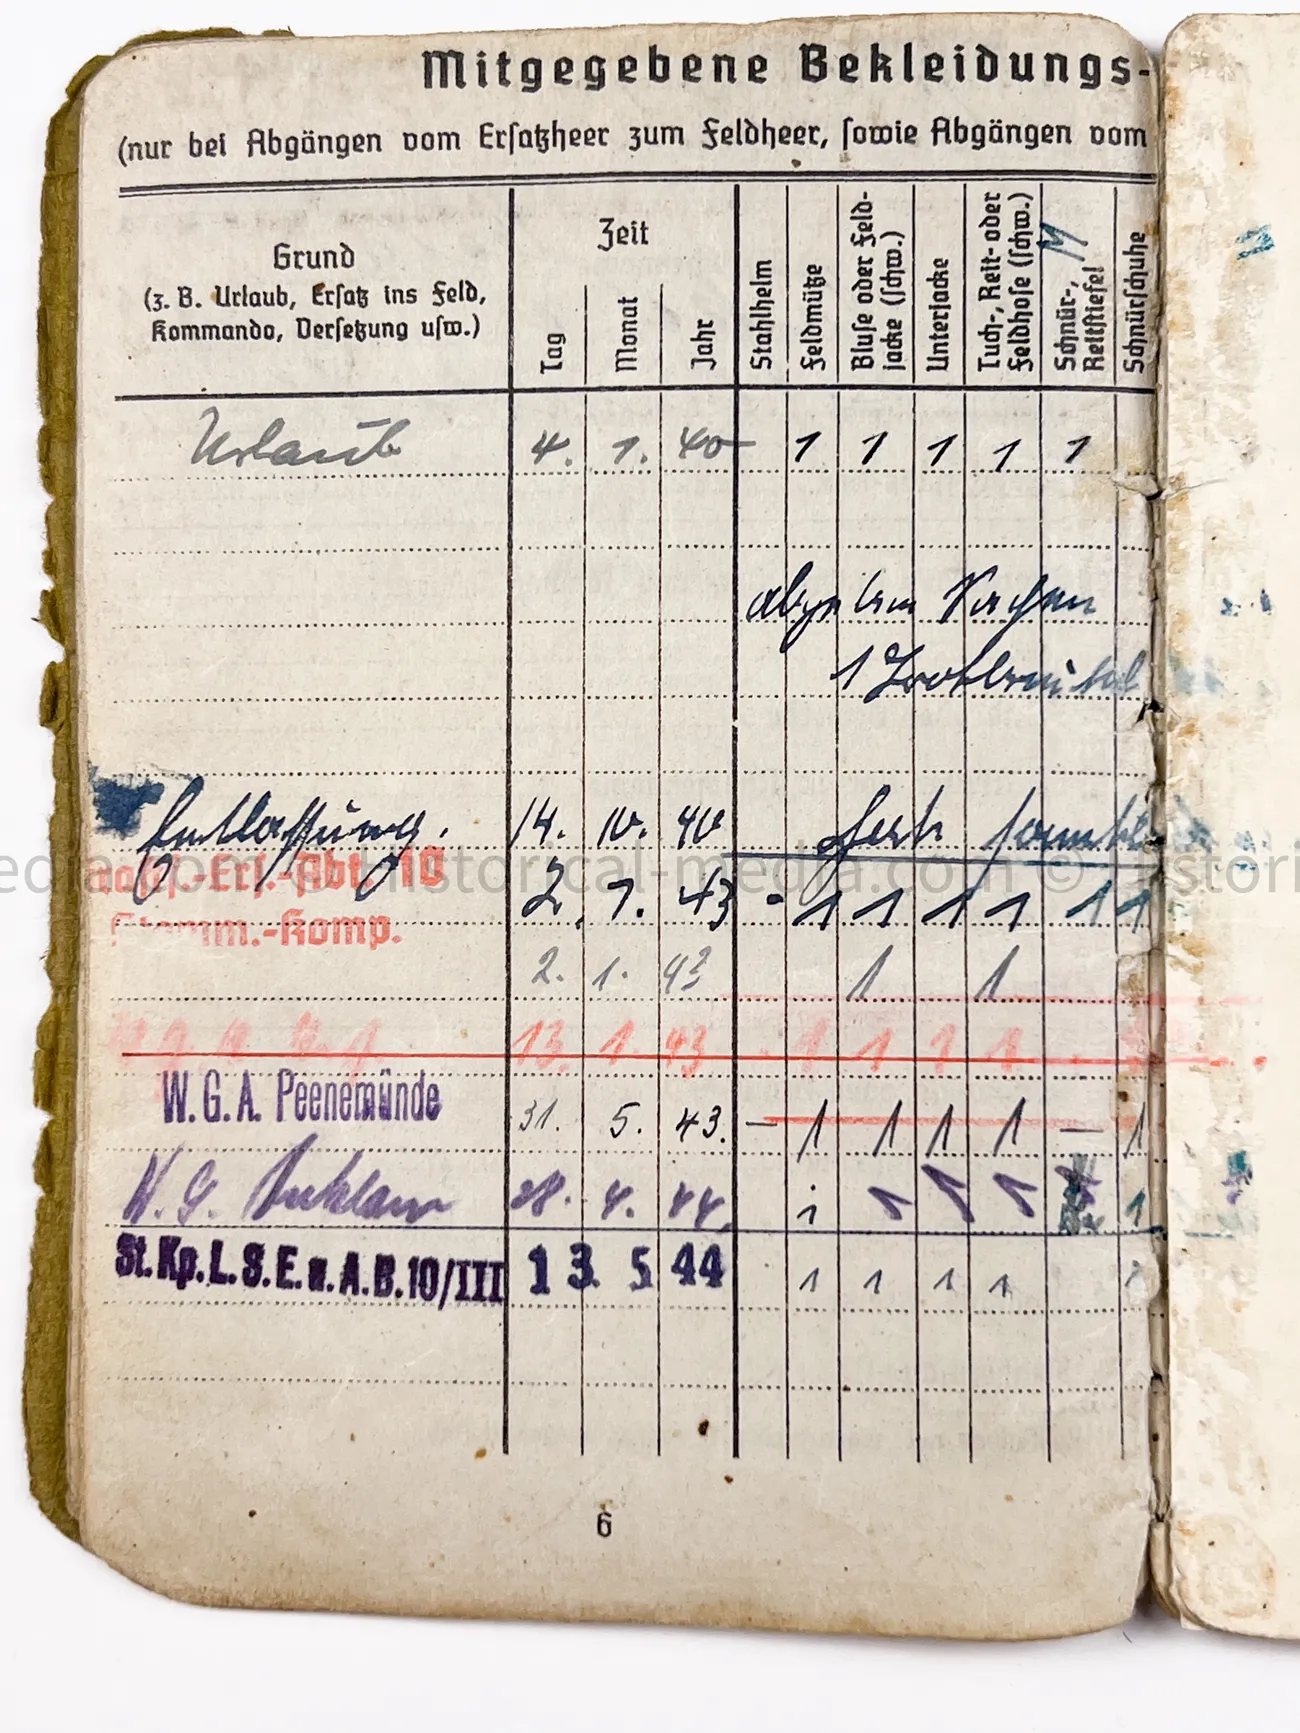 Mitgegebene Bekleidungs-
(nur bei Abgängen vom Ersatzheer zum Feldheer, sowie Abgängen vom
Grund
(z. B. Urlaub, Ersatz ins Feld,
Kommando, Versetzung usw.)
Zeit
Tag
Monat
Jahr
Stahlhelm
Feldmütze
Bluse oder Feld-
jacke (schw.)
Unterjacke
Tuch-, Reit- oder
Feldhose (schw.)
Schnür-,
Reitstiefel
Schnürschuhe
Urlaub 4. 1. 40 – 1 1 1 1 1
1 Brotbeutel
Entlassung. 14. 10. 40
Ers.-Abt. 10
2. 1. 43 - 1 1 1 1 1 1
Stamm.-Komp.
2. 1. 43 1 1
13. 1. 43 1 1 1 1
W. G. A. Peenemünde 31. 5. 43. – 1 1 1 1 – 1
28. 4. 44. 1 1 1 1 1
St. Kp. L. S. E. u. A. B. 10/III 1 3. 5. 44 1 1 1 1
6
media.com © Historical-media.com © Histori